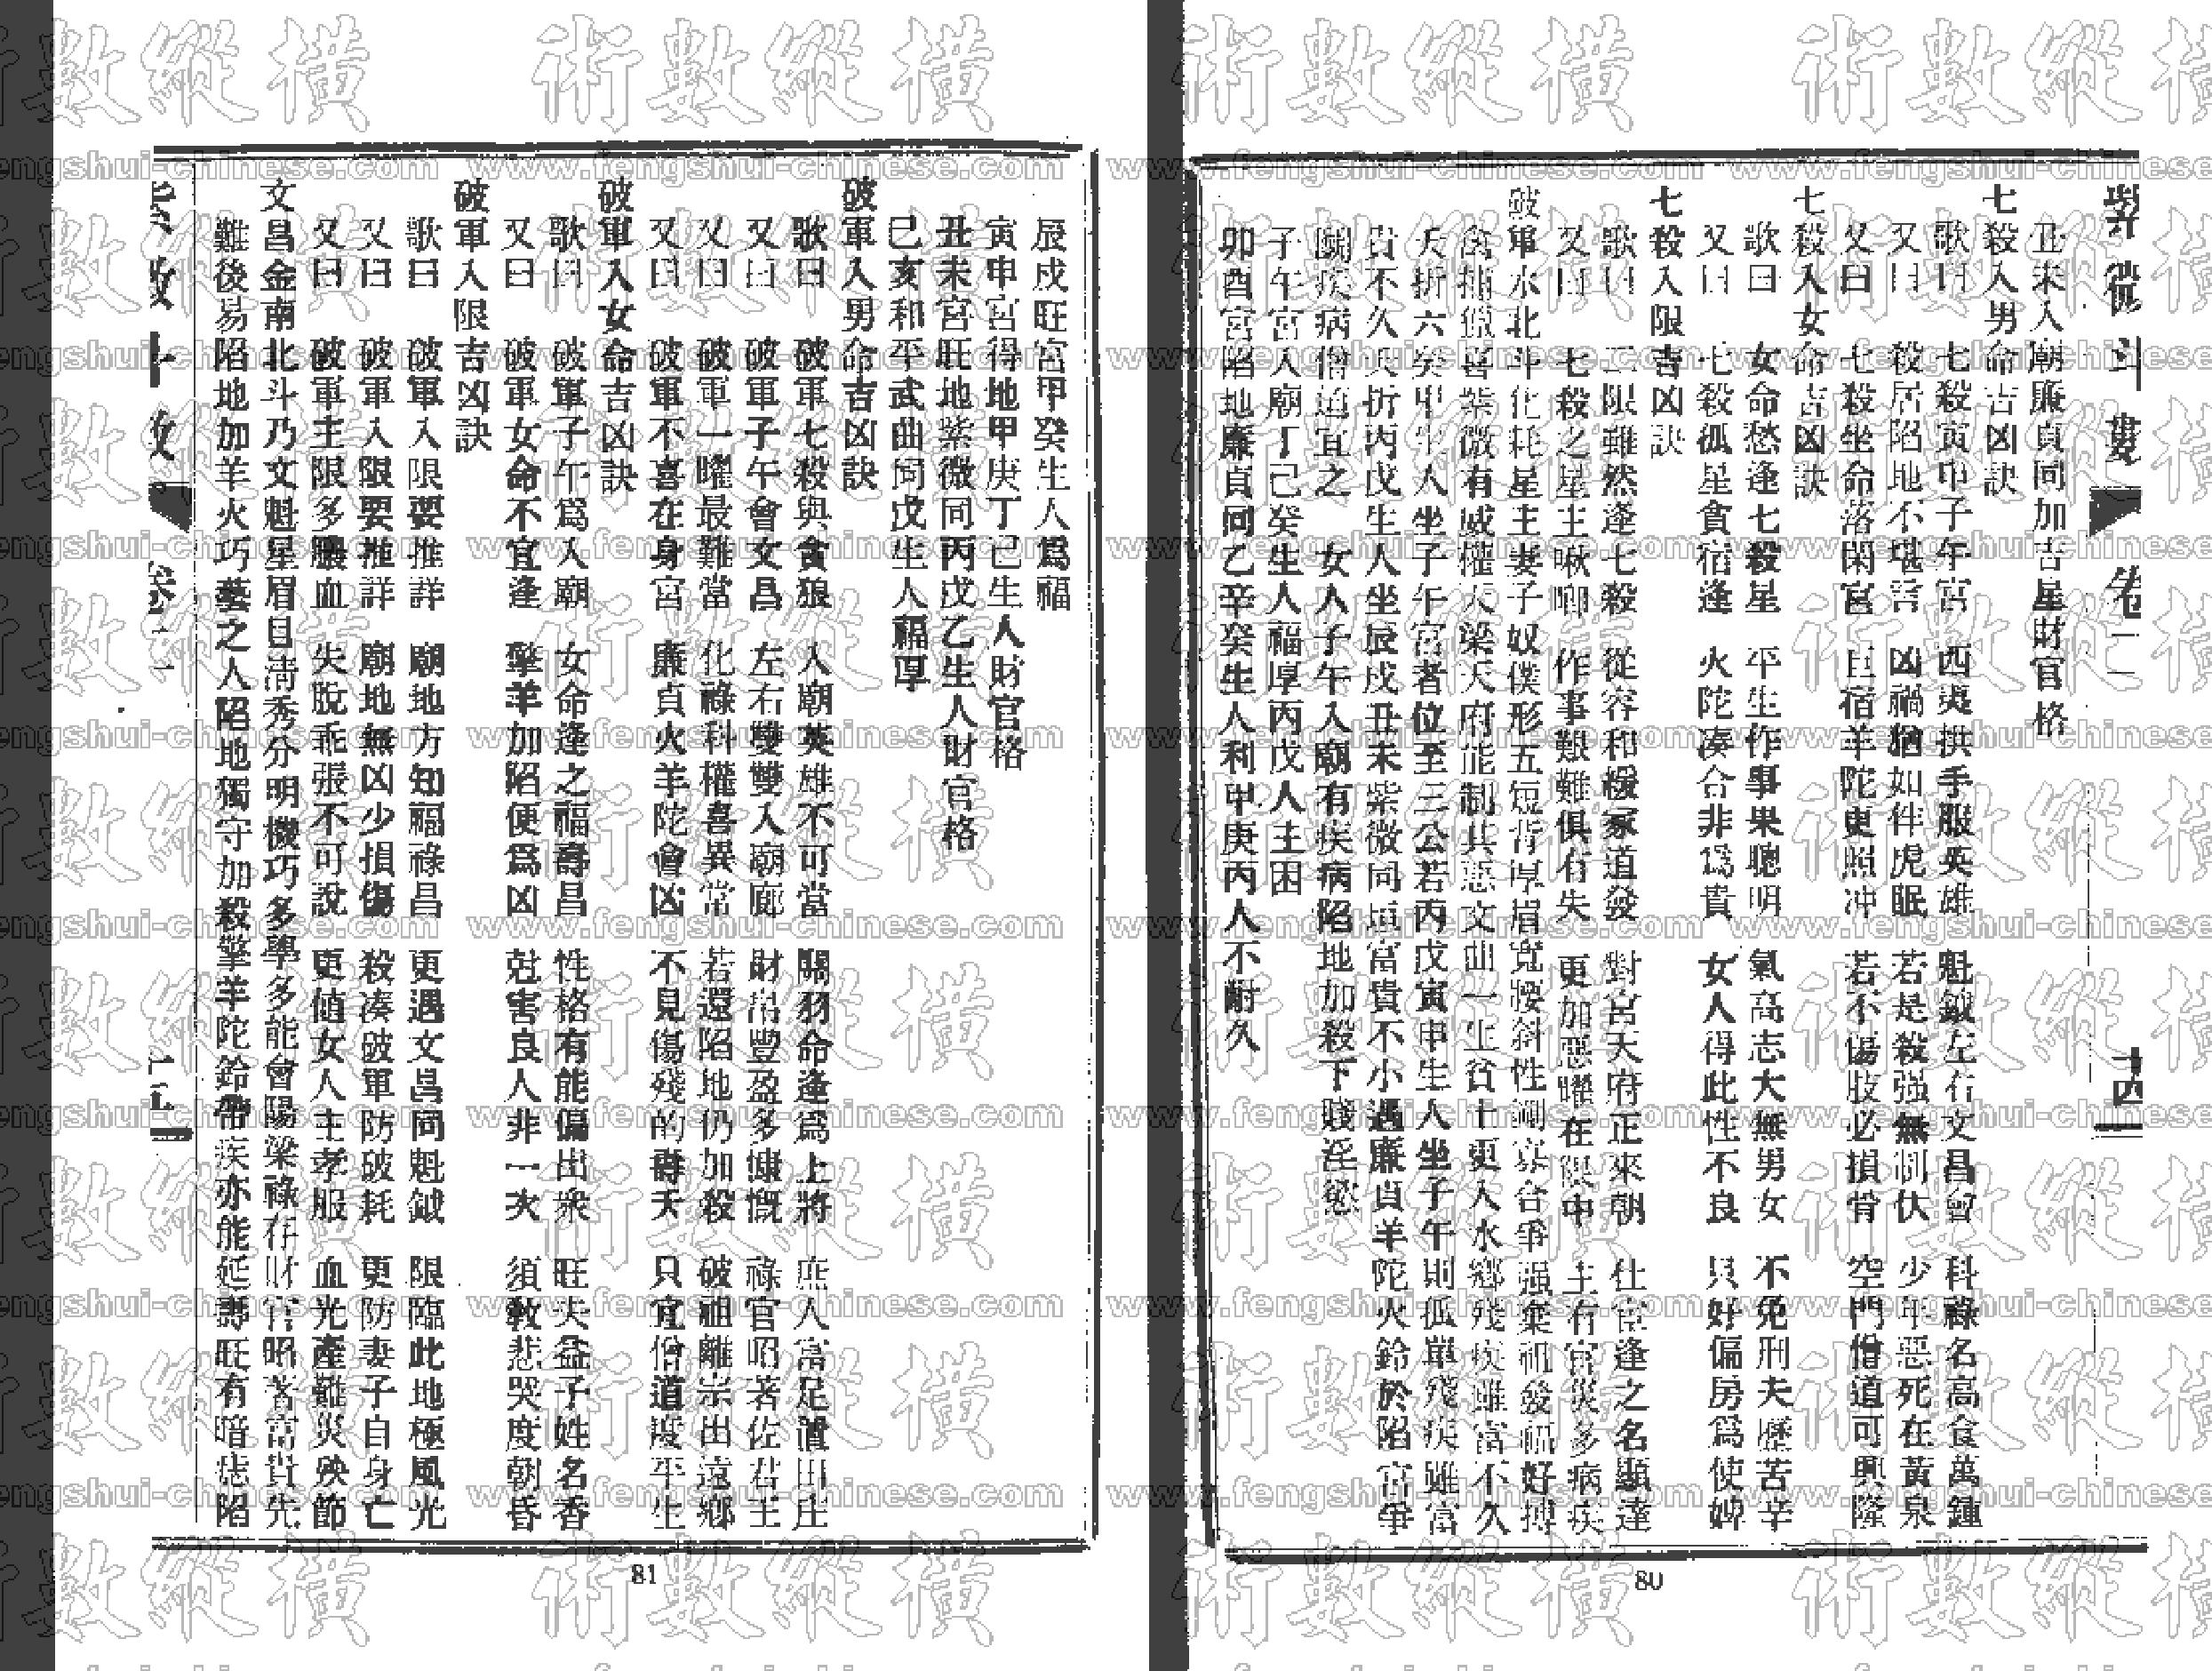 紫微斗數 卷二 十四
丑未入廟廉貞同加吉星財官格
七殺入男命吉凶訣
歌曰 七殺寅申子午宮 四夷拱手服英雄 魁鉞左右文昌會 科祿名高食萬鍾
又曰 殺居陷地不堪言 凶禍猶如伴虎眠 若是殺强無制伏 少年惡死在黃泉
又曰 七殺坐命落閑宮 巨宿羊陀更照冲 若不傷肢必損骨 空門僧道可興隆
七殺入女命吉凶訣
歌曰 女命愁逢七殺星 平生作事果聰明 氣高志大無男女 不免刑夫歷苦辛
又曰 七殺孤星貪宿逢 火陀湊合非爲貴 女人得此性不良 只好偏房爲使婢
七殺入限吉凶訣
歌曰 二限雖然逢七殺 從容和緩家道發 對宮天府正來朝 仕宦逢之名顯達
又曰 七殺之星主啾唧 作事艱難俱有失 更加惡曜在限中 主有官災多病疾
破軍水北斗化耗星主妻子奴僕形五短背厚眉寬腰斜性剛寡合爭强棄祖發福好搏
禽捕獵喜紫微有威權天梁天府能制其惡文曲一生貧士更入水鄉殘疾雖富不久
夭折六癸甲生人坐子午宮者位至三公若丙戊寅申生人坐子午則孤單殘疾雖富
貴不久夭折丙戊生人坐辰戌丑未紫微同垣富貴不小遇廉貞羊陀火鈴於陷宮爭
鬭疾病僧道宜之 女人子午入廟有疾病陷地加殺下賤淫慾
子午宮入廟丁己癸生人福厚丙戊人主困
卯酉宮陷地廉貞同乙辛癸生人利甲庚丙人不耐久
80
辰戌旺宮甲癸生人爲福
寅申宮得地甲庚丁己生人財官格
丑未宮旺地紫微同丙戊乙生人財官格
己亥和平武曲同戊生人福厚
破軍入男命吉凶訣
歌曰 破軍七殺與貪狼 入廟英雄不可當 關羽命逢爲上將 庶人富足置田庄
又曰 破軍子午會文昌 左右雙雙入廟廊 財帛豐盈多慷慨 祿官昭著佐君王
又曰 破軍一曜最難當 化祿科權喜異常 若還陷地仍加殺 破祖離宗出遠鄉
又曰 破軍不喜在身宮 廉貞火羊陀會凶 不見傷殘的壽夭 只宜僧道度平生
破軍入女命吉凶訣
歌曰 破軍子午爲入廟 女命逢之福壽昌 性格有能偏出衆 旺夫益子姓名香
又曰 破軍女命不宜逢 擎羊加陷便爲凶 尅害良人非一次 須敎悲哭度朝昏
破軍入限吉凶訣
歌曰 破軍入限要推詳 廟地方知福祿昌 更遇文昌同魁鉞 限臨此地極風光
又曰 破軍入限要推詳 廟地無凶少損傷 殺湊破軍防破耗 更防妻子自身亡
又曰 破軍主限多膿血 失脫乖張不可說 更值女人主孝服 血光產難災殃節
文昌金南北斗乃文魁星眉目淸秀分明機巧多學多能會陽梁祿存財官昭著富貴先
難後易陷地加羊火巧藝之人陷地獨守加殺擎羊陀鈴帶疾亦能延壽旺有暗痣陷
紫微斗數 卷二 十五
81
橫縱數術
www.fengshui-chinese.com